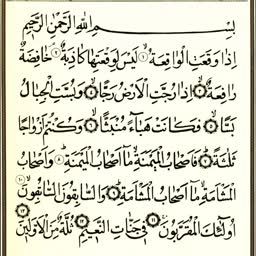 بِسْمِ اللهِ الرَّحْمٰنِ الرَّحِيْمِ
اِذَا وَقَعَتِ الْوَاقِعَةُ ۙ۝١ لَيْسَ لِوَقْعَتِهَا كَاذِبَةٌ ۘ۝٢ خَافِضَةٌ
رَافِعَةٌ ۙ۝٣ اِذَا رُجَّتِ الْاَرْضُ رَجًّا ۙ۝٤ وَبُسَّتِ الْجِبَالُ
بَسًّا ۙ۝٥ فَكَانَتْ هَبَآءً مُنْبَثًّا ۙ۝٦ وَكُنْتُمْ اَزْوَاجًا
ثَلٰثَةً ۝٧ فَاَصْحَابُ الْمَيْمَنَةِ مَآ اَصْحَابُ الْمَيْمَنَةِ ۝٨ وَاَصْحَابُ
الْمَشْـَٔمَةِ مَآ اَصْحَابُ الْمَشْـَٔمَةِ ۝٩ وَالسَّابِقُوْنَ السَّابِقُوْنَ ۝١٠
اُولٰٓئِكَ الْمُقَرَّبُوْنَ ۝١١ فِيْ جَنَّاتِ النَّعِيْمِ ۝١٢ ثُلَّةٌ مِنَ الْاَوَّلِيْنَ